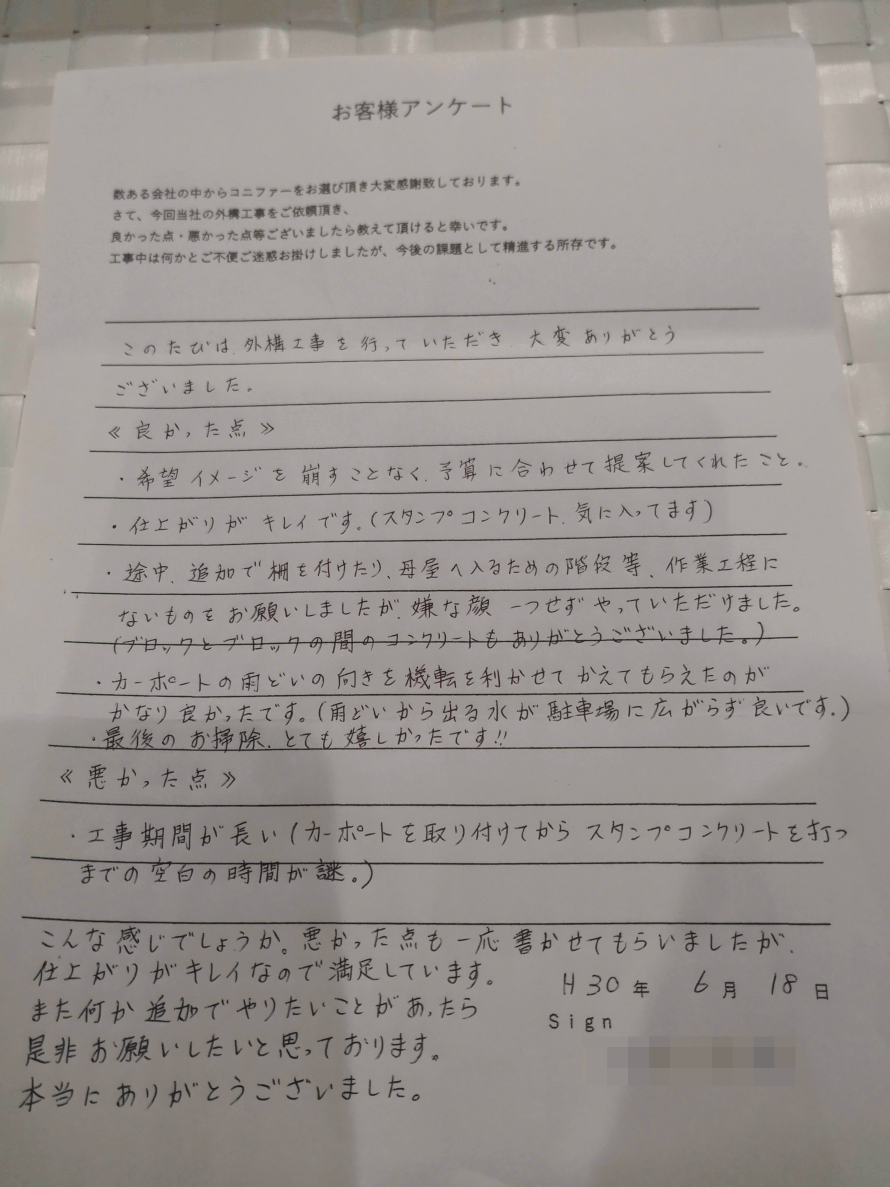 お客様アンケート
数ある会社の中からコニファーをお選び頂き大変感謝致しております。
さて、今回当社の外構工事をご依頼頂き、
良かった点・悪かった点等ございましたら教えて頂けると幸いです。
工事中は何かとご不便ご迷惑お掛けしましたが、今後の課題として精進する所存です。
このたびは、外構工事を行っていただき、大変ありがとう
ございました。
《良かった点》
・希望イメージを崩すことなく、予算に合わせて提案してくれたこと。
・仕上がりがキレイです。(スタンプコンクリート、気に入ってます)
・途中、追加で柵を付けたり、母屋へ入るための階段等、作業工程に
ないものをお願いしましたが、嫌な顔一つせずやっていただけました。
(ブロックとブロックの間のコンクリートもありがとうございました。)
・カーポートの雨どいの向きを機転を利かせてかえてもらえたのが
かなり良かったです。(雨どいから出る水が駐車場に広がらず良いです。)
・最後のお掃除、とても嬉しかったです!!
《悪かった点》
・工事期間が長い(カーポートを取り付けてからスタンプコンクリートを打つ
までの空白の時間が謎。)
こんな感じでしょうか。悪かった点も一応書かせてもらいましたが、
仕上がりがキレイなので満足しています。
また何か追加でやりたいことがあったら
是非お願いしたいと思っております。
本当にありがとうございました。
H30年 6月 18日
Sign